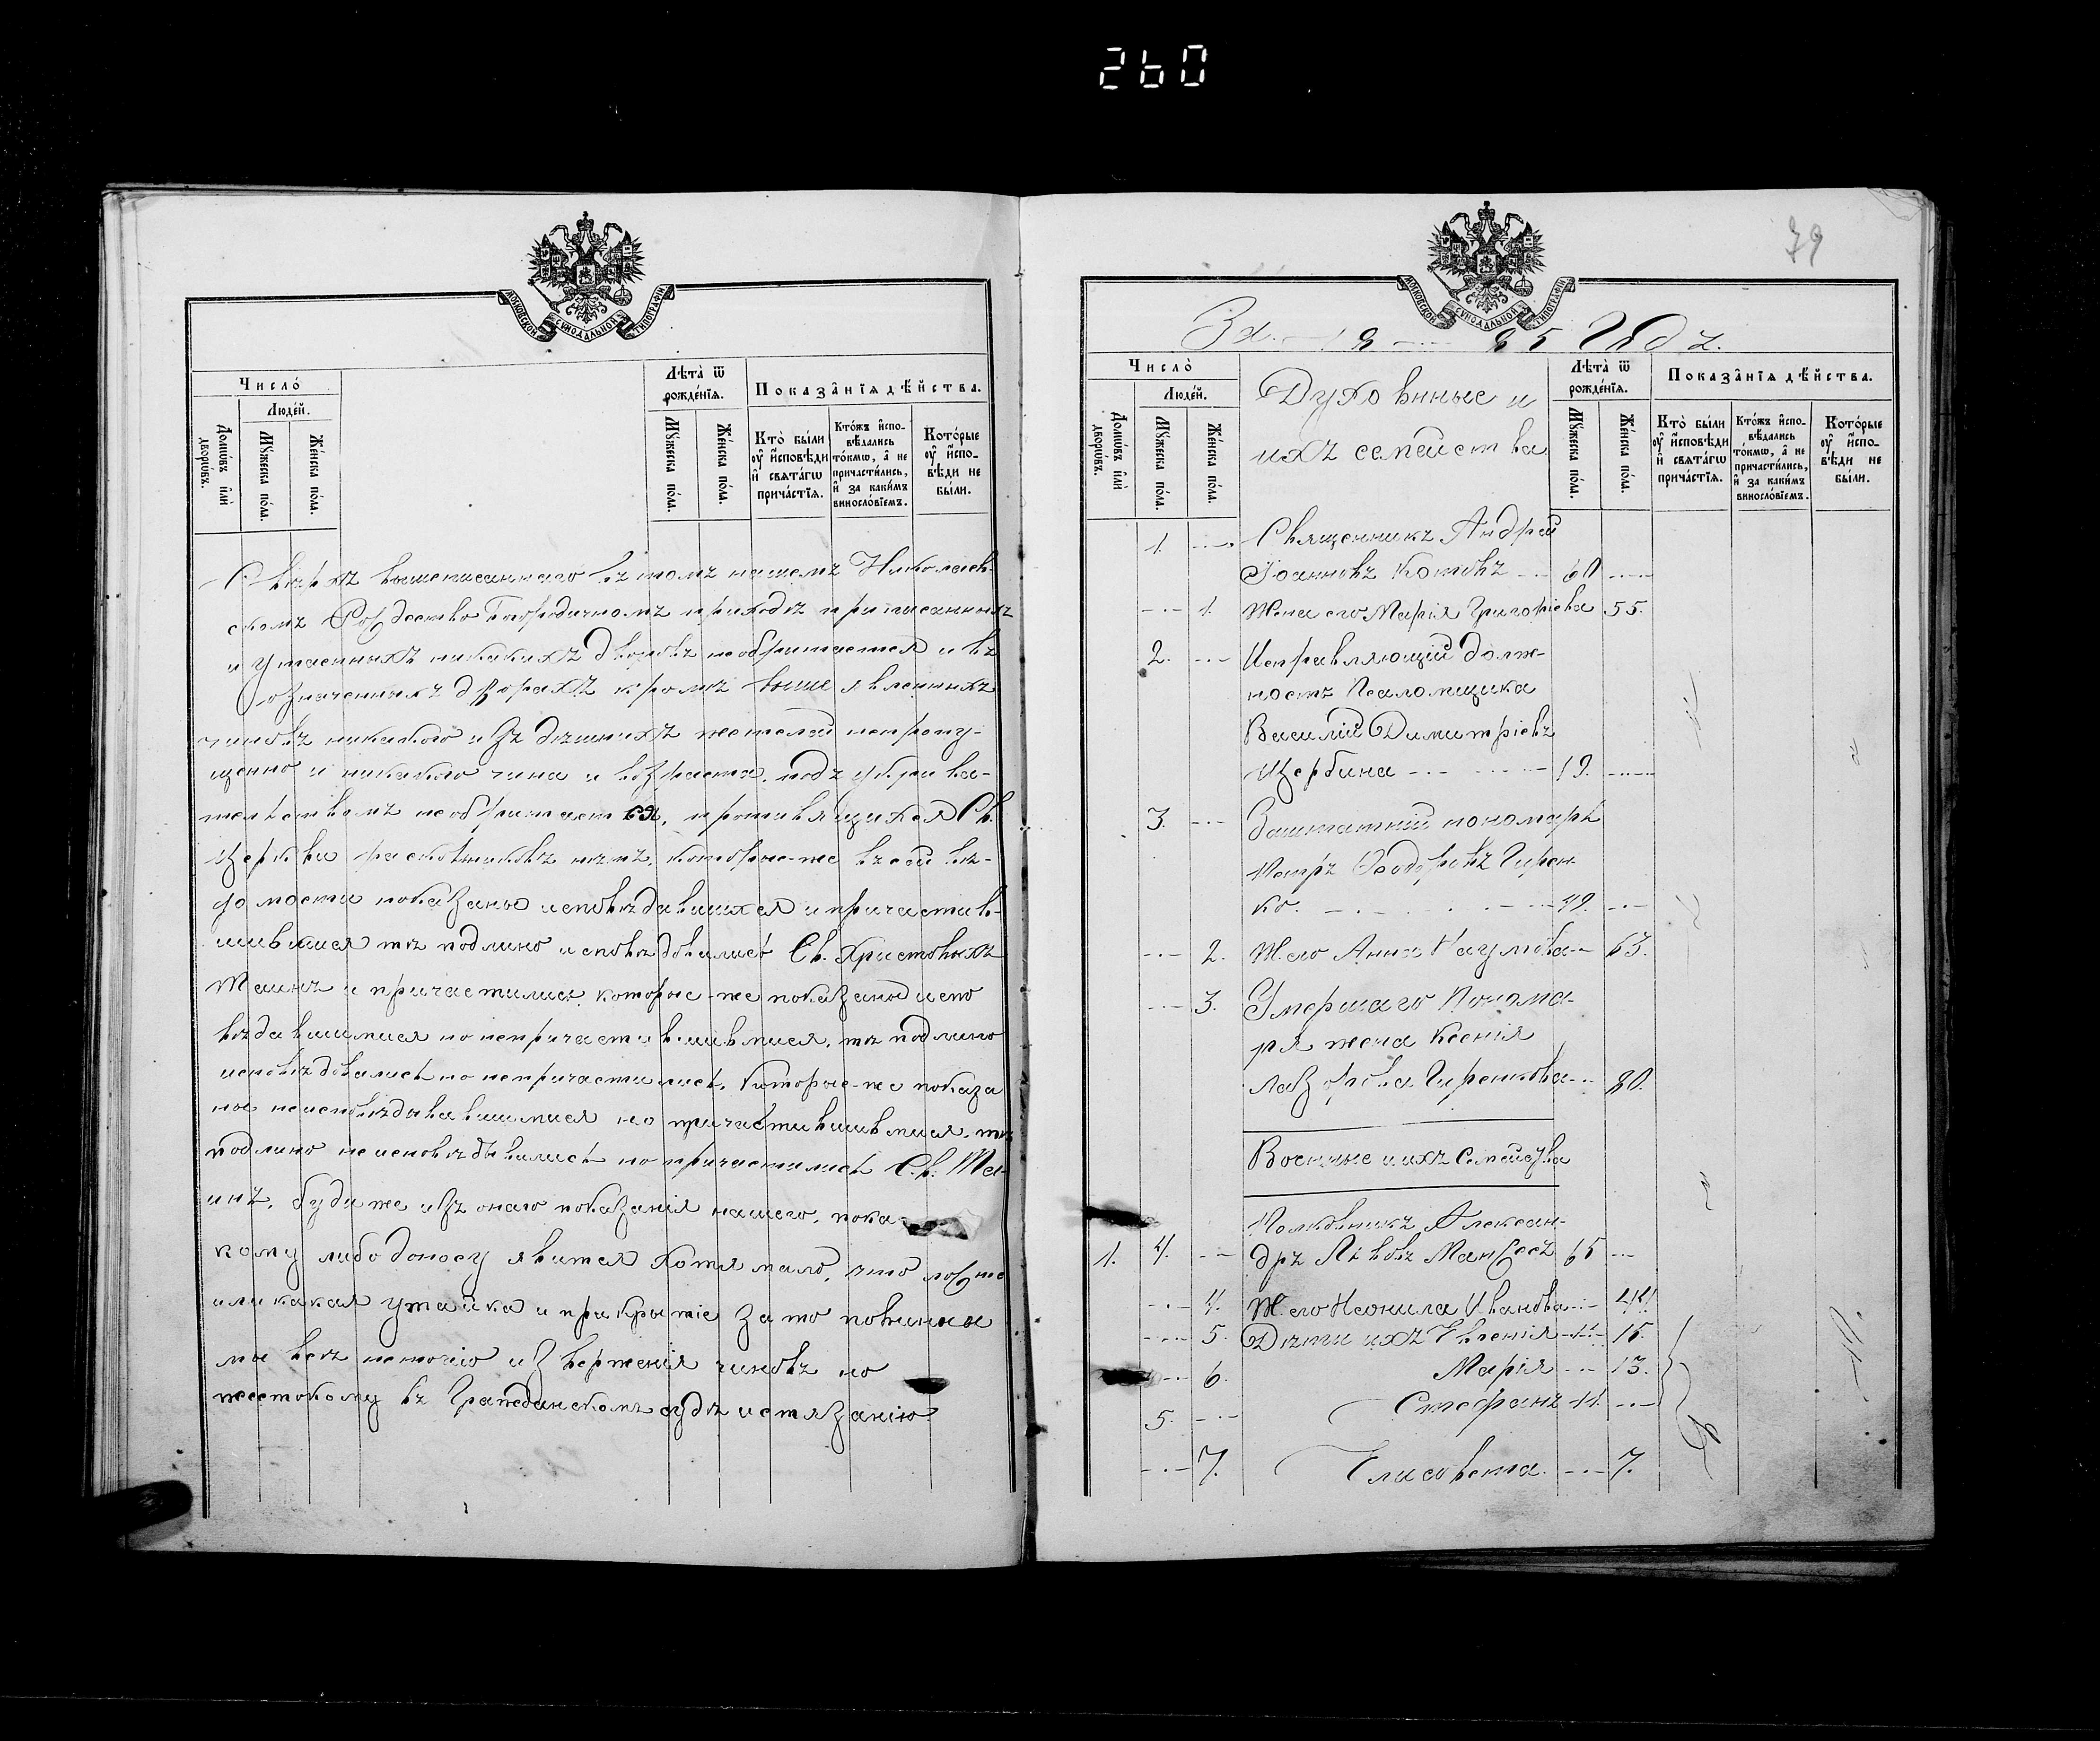 260
МОСКОВСКОЙ СѴНОДАЛЬНОЙ ТИПОГРАФІИ
Число̀
Люде́й.
Домо́въ и҆лѝ дворо́въ.
Мꙋ́жеска по́ла.
Же́нска по́ла.
Лѣ́та ѿ рожде́нїѧ.
Мꙋ́жеска по́ла.
Же́нска по́ла.
Показа̑нїѧ дѣ́йства.
Кто̀ бы́ли оу҆ и҆сповѣ́ди и҆ свѧта́гѡ прича́стїѧ.
Кто́жъ и҆спо-вѣ́дались то́кмѡ, а҆ не причасти́лись, и҆ за каки́мъ винослові́емъ.
Кото́рые оу҆ и҆спо-вѣ́ди не бы́ли.
Сверхъ вышеписаннаго въ томъ нашемъ Николаев-
скомъ Рождество Богородичномъ приходѣ приписанныхъ
и утаенныхъ никакихъ дворовъ необрѣтается и въ
означенныхъ дворахъ кромѣ выше явленныхъ
чиновъ никакого изъ здѣшнихъ жителей непропу-
щенно и никакого чина и возраста, подъ укрива-
тельствомъ необрѣтается, противящихся Св.
Церкви раскольниковъ нѣтъ, которые-же въ сей вѣ-
домости показаны исповѣдавшихся и причастив-
шившися тѣ подлино исповѣдовались Св. Христовыхъ
Таинъ и причастились, которые-же показаны испо
вѣдавшимися но непричастившивмися, тѣ подлино
исповѣдовались но непричастились, которые-же показа
ны неисповѣдывавшимися но причастившивмися, тѣ
подлино неисповѣдывались но причастились Св. Та-
инъ, буди же изъ онаго показанія нашего, пока-
кому либо доносу явится хотя мало, что ложно
или какая утайка и прикрытіе за то повинны
мы всѣ неточію изверженія чиновъ но
жестокому въ Гражданскомъ судѣ истязанію.
79
МОСКОВСКОЙ СѴНОДАЛЬНОЙ ТИПОГРАФІИ
За 1885 Годъ.
Число̀
Люде́й.
Домо́въ и҆лѝ дворо́въ.
Мꙋ́жеска по́ла.
Же́нска по́ла.
Духовнные и
ихъ семейства
Лѣ́та ѿ рожде́нїѧ.
Мꙋ́жеска по́ла.
Же́нска по́ла.
Показа̑нїѧ дѣ́йства.
Кто̀ бы́ли оу҆ и҆сповѣ́ди и҆ свѧта́гѡ прича́стїѧ.
Кто́жъ и҆спо-вѣ́дались то́кмѡ, а҆ не причасти́лись, и҆ за каки́мъ винослові́емъ.
Кото́рые оу҆ и҆спо-вѣ́ди не бы́ли.
1. Священникъ Андрей
Іоанновъ Котовъ 60
1. Жена его Марія Григоріева 55.
2. Исправляющій долж-
ность Псаломщика
Василій Димитріевъ
Щербина 19.
3. Заштатній пономарь
Петръ Ѳеодоровъ Гирен-
ко. 49.
2. Ж. его Анна Наумова 63.
3. Умершаго Понома-
ря жена Ксенія
Лазорева Гиренкова 80.
Военные и ихъ Семейства
Полковникъ Алексан-
1. 4. дръ Львовъ 65
4. Ж. его Неонила Иванова 44.
5. Дѣти ихъ Евгенія 15.
6. Марія 13.
5. Стефанъ 11.
7. Елисовета 7.